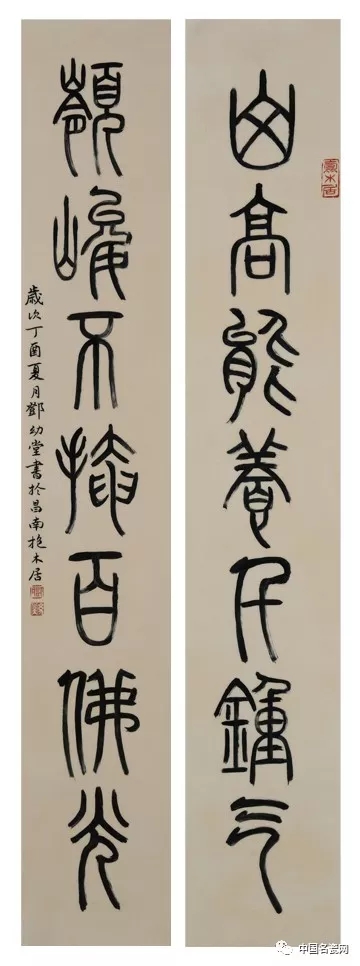 山高能養千鍾气
嶺峻不掩百佛光
歲次丁酉夏月鄧幼堂書於昌南抱木居
中国名瓷网